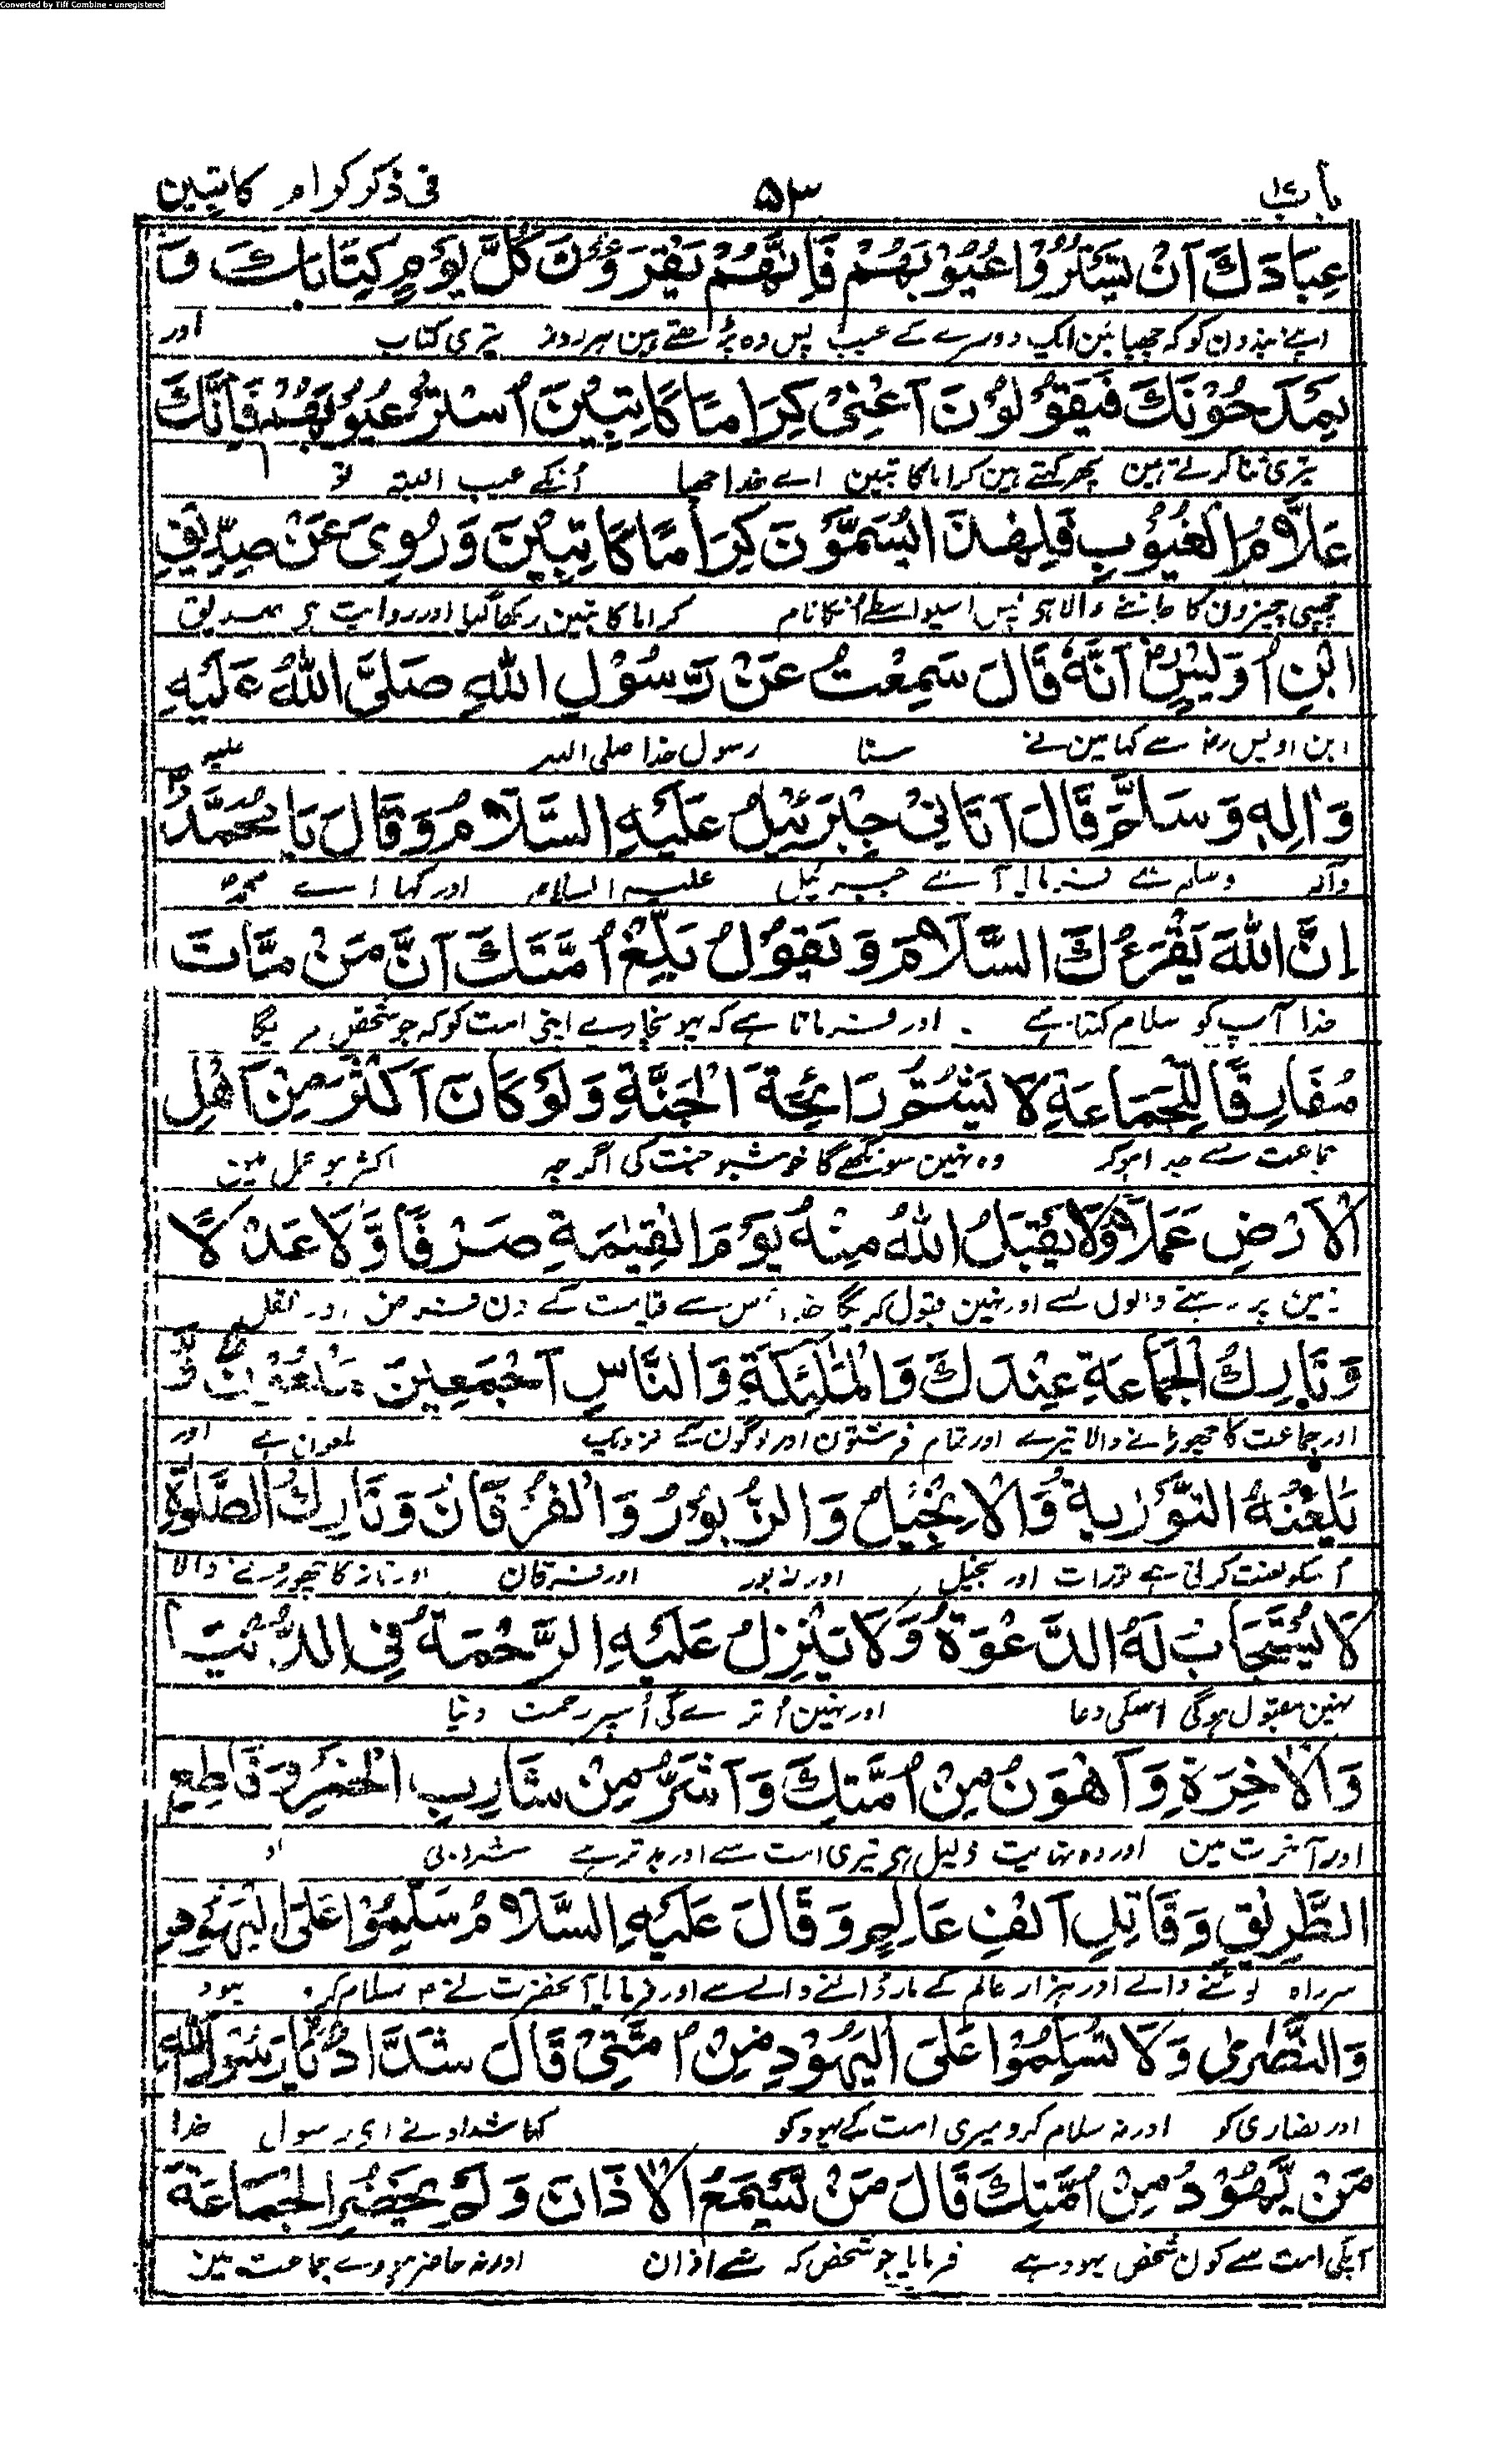 Converted by Tiff Combine - unregistered
باب ۱۷ ۵۳ فی ذکر کرام کاتبین
عِبَادَكَ اَنْ يَسْتُرُوْا عُيُوْبَهُمْ فَاِنَّهُمْ يَقْرَءُوْنَ كُلَّ يَوْمٍ كِتَابَكَ وَ
اپنے بندون کو کہ چھپائین ایک دوسرے کے عیب پس وہ پڑھتے ہین ہر روز تیری کتاب اور
يَمْدَحُوْنَكَ فَيَقُوْلُوْنَ اَعْنِیْ كِرَامًا كَاتِبِيْنَ اُسْتُرْ عُيُوْبَهُمْ فَاِنَّكَ
تیری ثنا کرتے ہین پھر کہتے ہین کراما کاتبین اے خدا چھپا اُنکے عیب البتہ تو
عَلَّامُ الْغُيُوْبِ فَلِهٰذَا يُسَمُّوْنَ كِرَامًا كَاتِبِيْنَ وَرُوِیَ عَنْ صِدِّيْقِ
چھپی چیزون کا جاننے والا ہی پس اسیواسطے اُنکا نام کراما کاتبین رکھا گیا اور روایت ہی صدیق
ابْنِ اُوَيْسٍ رض اَنَّهٗ قَالَ سَمِعْتُ عَنْ رَّسُوْلِ اللّٰهِ صَلَّی اللّٰهُ عَلَيْهِ
ابن اویس رض سے کہا مین نے سنا رسول خدا صلی اللہ علیہ
وَاٰلِهٖ وَسَلَّمَ قَالَ اَتَانِیْ جِبْرَئِيْلُ عَلَيْهِ السَّلَامُ وَقَالَ يَا مُحَمَّدُ
وآلہ وسلم سے فرمایا آئے جبرئیل علیہ السلام اور کہا اے محمد
اِنَّ اللّٰهَ يَقْرَءُكَ السَّلَامَ وَيَقُوْلُ بَلِّغْ اُمَّتَكَ اَنَّ مَنْ مَّاتَ
خدا آپ کو سلام کہتا ہے اور فرماتا ہے کہ پہونچا دے اپنی امت کو کہ جو شخص مریگا
مُفَارِقًا لِّلْجَمَاعَةِ لَا يَشُمُّ رَائِحَةَ الْجَنَّةِ وَلَوْ كَانَ اَكْثَرَ مِنْ اَهْلِ
جماعت سے جدا ہو کر وہ نہین سونگھے گا خوشبو جنت کی اگرچہ اکثر ہو عمل مین
الْاَرْضِ عَمَلًا وَّلَا يَقْبَلُ اللّٰهُ مِنْهُ يَوْمَ الْقِيٰمَةِ صَرْفًا وَّلَا عَدْلًا
زمین پر رہنے والون سے اور نہین قبول کریگا خدا اُس سے قیامت کے دن فرض اور نفل
وَتَارِكُ الْجَمَاعَةِ عِنْدَكَ وَالْمَلٰئِكَةِ وَالنَّاسِ اَجْمَعِيْنَ مَلْعُوْنٌ وَّ
اور جماعت کا چھوڑنے والا تیرے اور تمام فرشتون اور لوگون کے نزدیک ملعون ہے اور
يَلْعَنُهُ التَّوْرٰيةُ وَالْاِنْجِيْلُ وَالزَّبُوْرُ وَالْفُرْقَانُ وَتَارِكُ الصَّلٰوةِ
اُسکو لعنت کرتی ہے تورات اور انجیل اور زبور اور فرقان اور نماز کا چھوڑنے والا
لَا يُسْتَجَابُ لَهُ الدَّعْوَةُ وَلَا يَنْزِلُ عَلَيْهِ الرَّحْمَةُ فِی الدُّنْيَا
نہین مقبول ہوگی اسکی دعا اور نہین اُترے گی اُسپر رحمت دنیا
وَالْاٰخِرَةِ وَاَهْوَنُ مِنْ اُمَّتِكَ وَاَشَرُّ مِنْ شَارِبِ الْخَمْرِ وَقَاطِعِ
اور آخرت مین اور وہ نہایت ذلیل ہی تیری امت سے اور بدتر ہے شرابی او
الطَّرِيْقِ وَقَاتِلِ اَلْفِ عَالِمٍ وَقَالَ عَلَيْهِ السَّلَامُ سَلِّمُوْا عَلَی الْيَهُوْدِ
سر راہ لوٹنے والے اور ہزار عالم کے مار ڈالنے والے سے اور فرمایا آنحضرت نے م سلام کرو یہود
وَالنَّصٰرٰی وَلَا تُسَلِّمُوْا عَلَی الْيَهُوْدِ مِنْ اُمَّتِیْ قَالَ شَدَّادٌ يَا رَسُوْلَ اللّٰهِ
اور نصاری کو اور نہ سلام کرو میری امت کے یہود کو کہا شداد نے ای رسول خدا
مَنْ يَّهُوْدُ مِنْ اُمَّتِكَ قَالَ مَنْ يَّسْمَعُ الْاَذَانَ وَلَمْ يَحْضُرِ الْجَمَاعَةَ
آپکی امت سے کون شخص یہود ہے فرمایا جو شخص کہ سنے اذان اور نہ حاضر ہووے جماعت مین